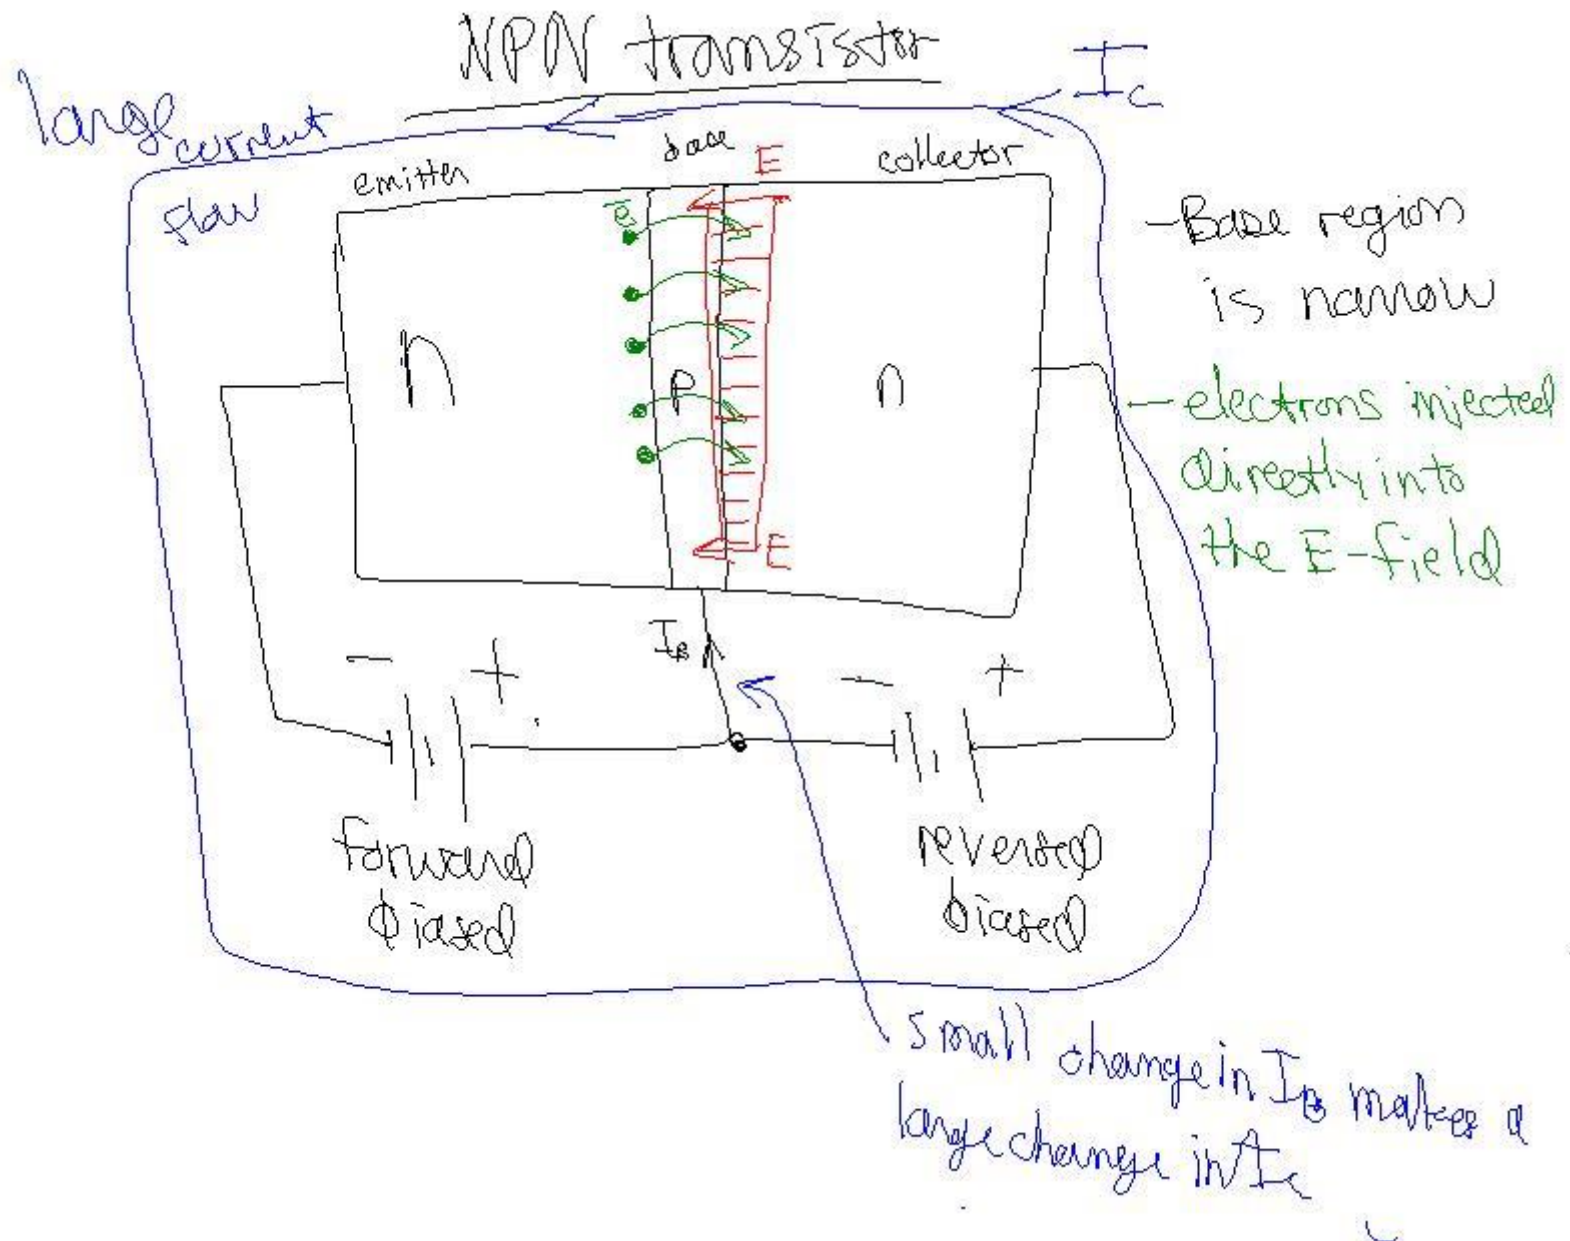 NPN transister
I_C
large current
flow
emitter
base
collector
E
e⁻
- Base region
is narrow
n
p
n
- electrons injected
directly into
the E-field
E
I_B
- +
- +
forward
biased
reversed
biased
small change in I_B makes a
large change in I_C